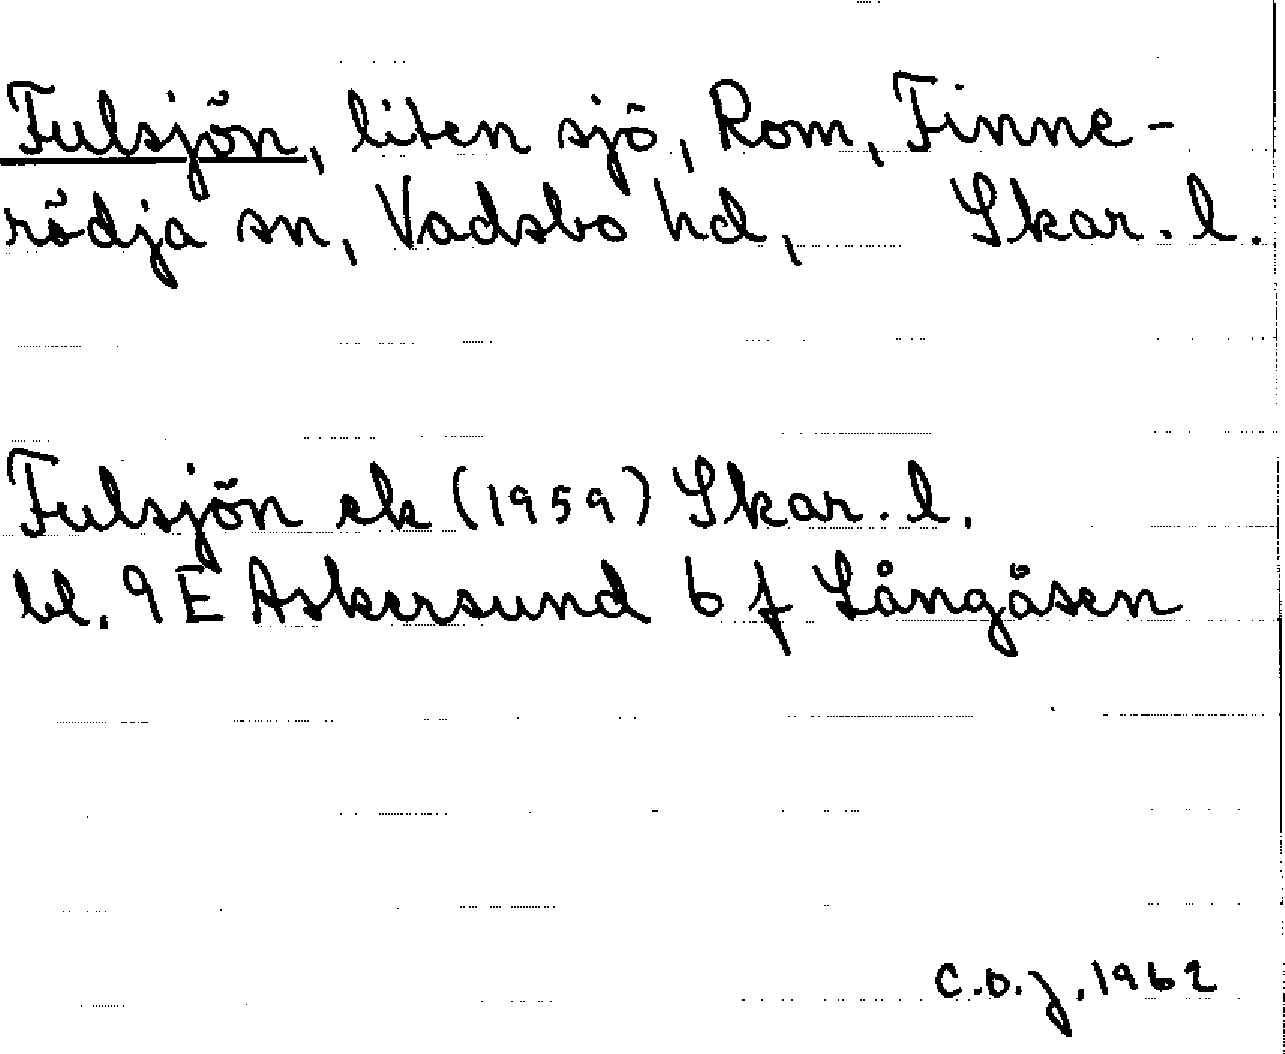 Fulsjön, liten sjö, Rom, Finne-
rödja sn, Vadsbo hd, Skar. l.
Fulsjön ek (1959) Skar. l.
bl. 9E Askersund 6 f Långåsen
C.O.J. 1962